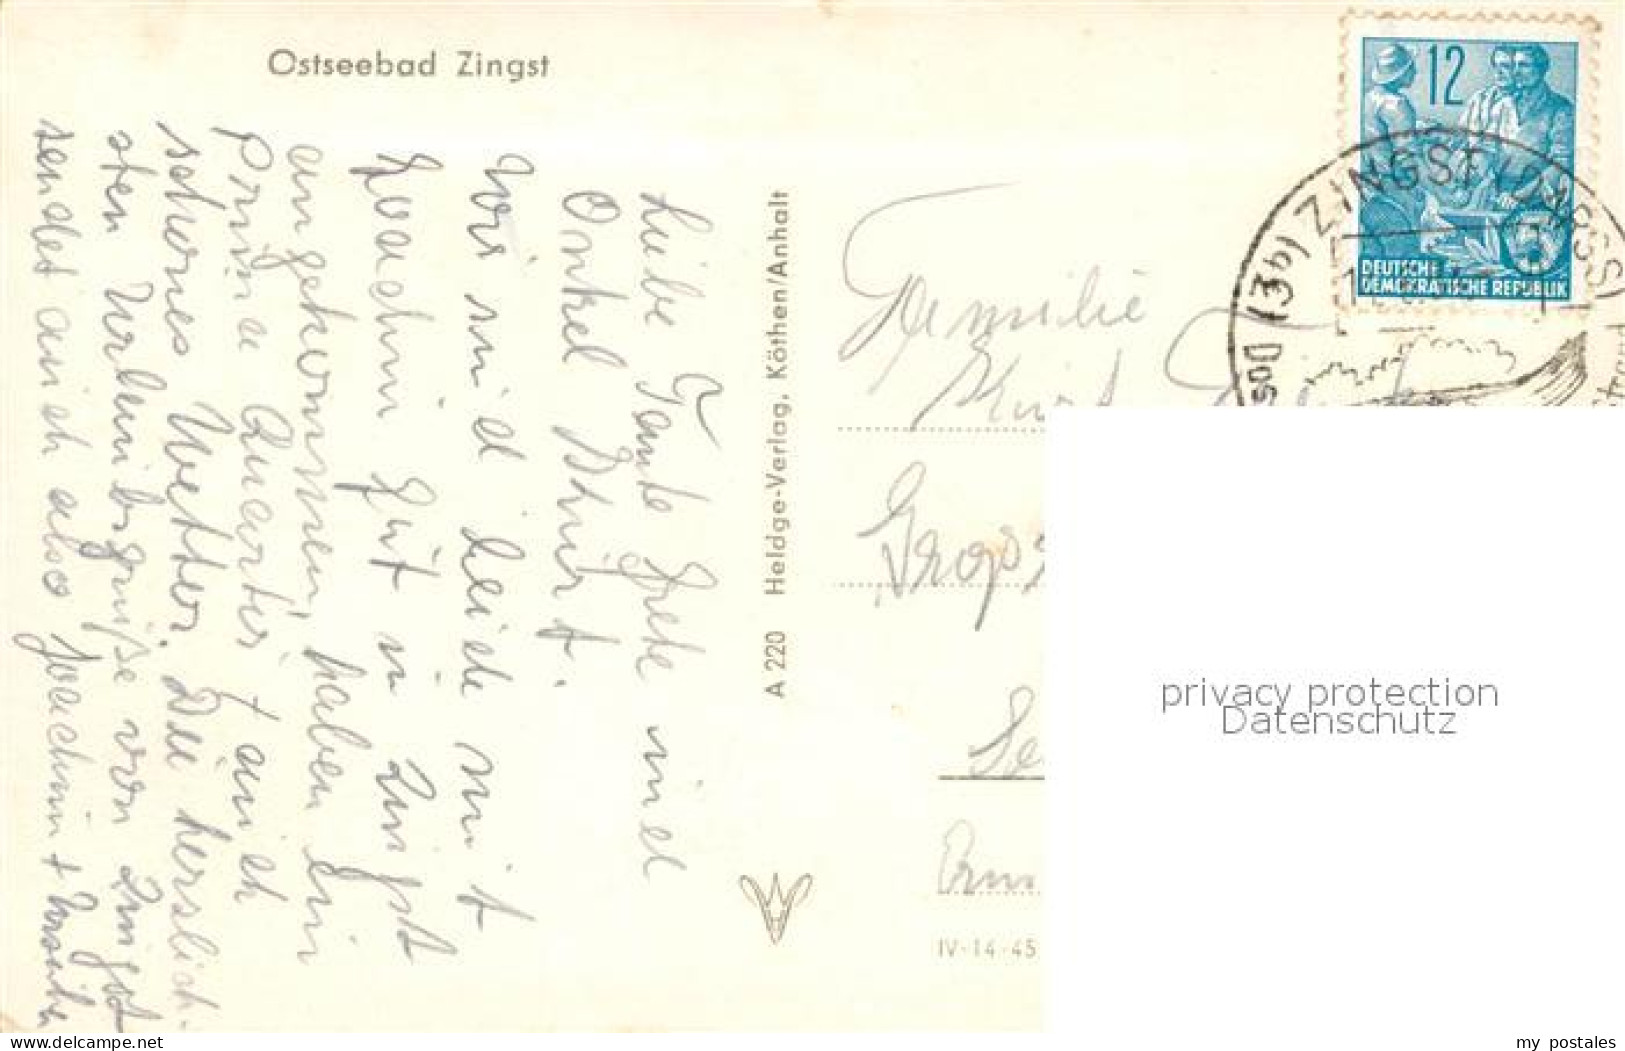 Ostseebad Zingst
Liebe Tante Grete und
Onkel
Wir sind beide mit
Joachim gut in Zingst
angekommen, haben ein
Prima Quartier + auch
schönes Wetter. Die herzlich-
sten Urlaubsgrüße von Zingst
sendet auch also Joachim +
A 220 Heldge-Verlag, Köthen/Anhalt
12
DEUTSCHE
DEMOKRATISCHE REPUBLIK
ZINGST (DARSS)
Familie
Kurt
IV-14-45
privacy protection
Datenschutz
delcampe.net
my_postales